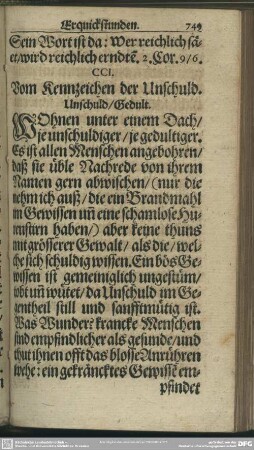 Erquickstunden. 749
Sein Wort ist da: Wer reichlich sä-
et/wird reichlich erndtē. 2. Cor. 9/6.
CCI.
Vom Kennzeichen der Unschuld.
Unschuld/Gedult.
WOhnen unter einem Dach/
je unschuldiger/je gedultiger.
Es ist allen Menschen angebohren/
daß sie üble Nachrede von ihrem
Namen gern abwischen/(nur die
nehm ich auß/die ein Brandmahl
im Gewissen uñ eine schamlose Hu-
renstirn haben/) aber keine thuns
mit grösserer Gewalt/als die/wel-
che sich schuldig wissen. Ein bös Ge-
wissen ist gemeiniglich ungestüm/
tobt uñ wütet/da Unschuld im Ge-
gentheil still und sanfftmütig ist.
Was Wunder? krancke Menschen
sind empfindlicher als gesunde/und
thut ihnen offt das blosse Anrühren
wehe: ein gekräncktes Gewissē em-
pfindet